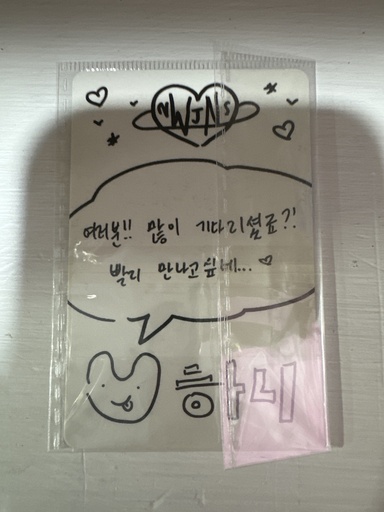 NWJNS
여러분!! 많이 기다리셨죠?!
빨리 만나고싶네... ♡
하니